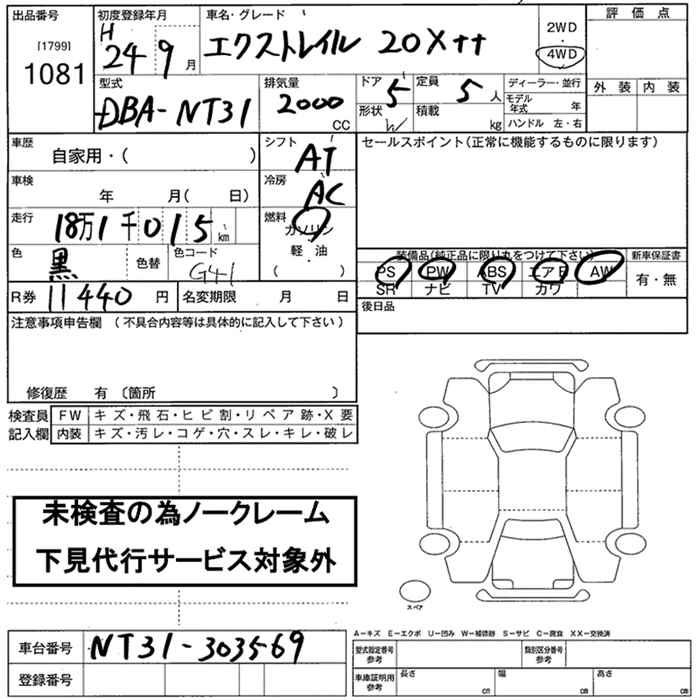 出品番号 初度登録年月 車名・グレード 2WD 評価点
[1799] 1081 H 24 9月 エクストレイル 20X++ ・ 4WD
型式 排気量 ドア 定員 ディーラー・並行 外装 内装
DBA-NT31 2000 CC 5 5人 モデル年式 年
形状 W 積載 kg ハンドル 左・右
車歴 シフト セールスポイント(正常に機能するものに限ります)
自家用・( ) AT
車検 冷房
年 月( 日) AC
走行 燃料
18万1千015km ガソリン
色 色替 色コード 軽・油 装備品(純正品に限り丸をつけて下さい) 新車保証書
黒 G41 ( ) PS PW ABS エアB AW 有・無
SR ナビ TV カワ
R券 11440円 名変期限 月 日 後日品
注意事項申告欄 (不具合内容等は具体的に記入して下さい)
修復歴 有 〔箇所 〕
検査員 FW キズ・飛石・ヒビ割・リペア跡・X要
記入欄 内装 キズ・汚レ・コゲ・穴・スレ・キレ・破レ
未検査の為ノークレーム
下見代行サービス対象外
スペア
A-キズ E-エクボ U-凹み W-補修跡 S-サビ C-腐食 XX-交換済
車台番号 NT31-303569 型式指定番号 参考 類別区分番号 参考
登録番号 車庫証明用 参考 長さ cm 幅 cm 高さ cm